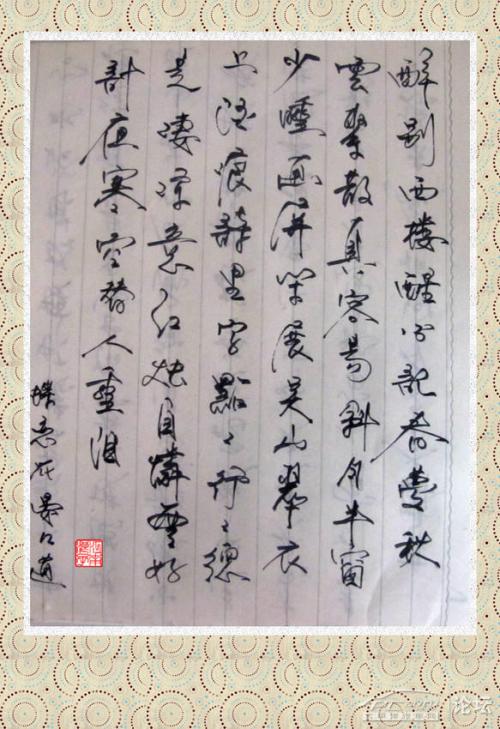 醉别西楼醒不记春夢秋
雲聚散真容易斜月半窗
少睡画屏闲展吴山翠衣
上酒痕詩里字點々行々總
是凄凉意红烛自憐無好
計夜寒空替人垂泪
蝶恋花晏几道
论坛